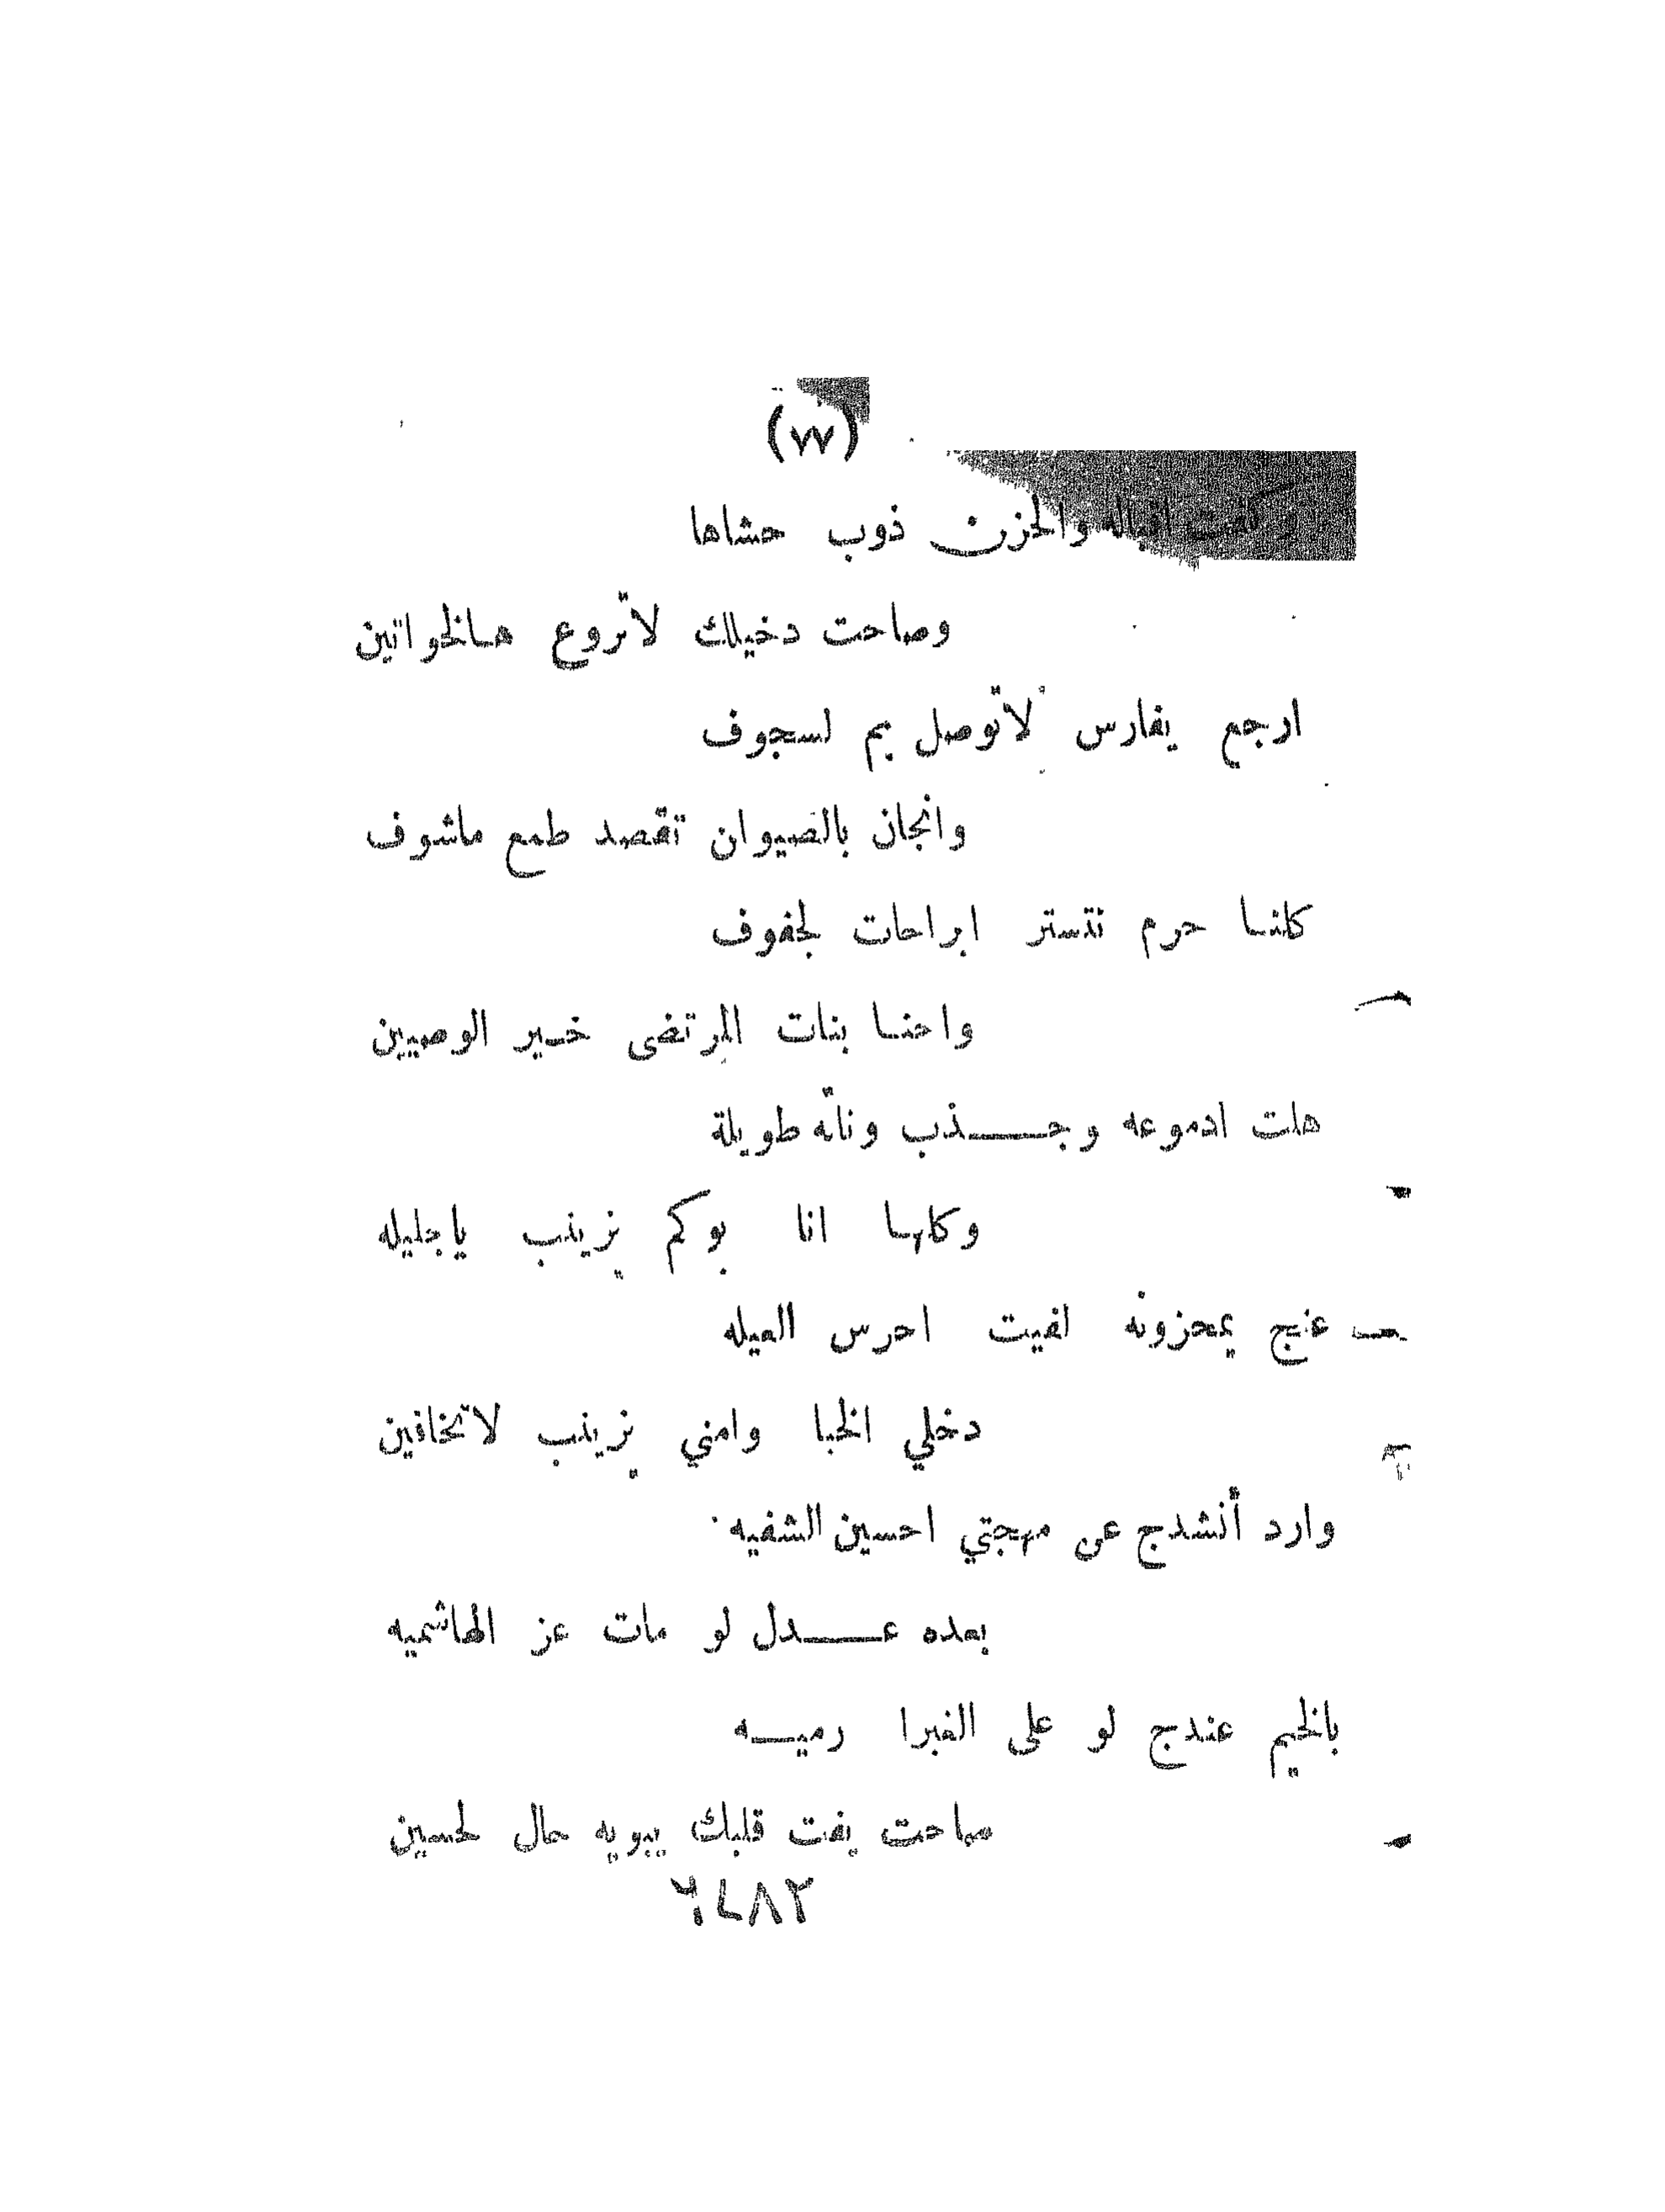 (٧٧)
وكفت اقباله والحزن ذوب حشاها
وصاحت دخيلك لاتروع هالخواتين
ارجع يفارس لاتوصل يم لسجوف
وانجان بالصيوان تقصد طمع ماشوف
كلنا حرم نتستر ابراحات لجفوف
واحنا بنات المرتضى خير الوصيين
هلت ادموعه وجذب وناته طويلة
وكلها انا بوكم يزينب ياجليله
عنج يمحزونه لفيت احرس العيله
دخلي الخبا وامني يزينب لاتخافين
وارد أنشدج عن مهجتي احسين الشفيه
بعده عدل لو مات عز الهاشميه
بالخيم عندج لو على الغبرا رميه
صاحت يفت قلبك يبويه حال لحسين